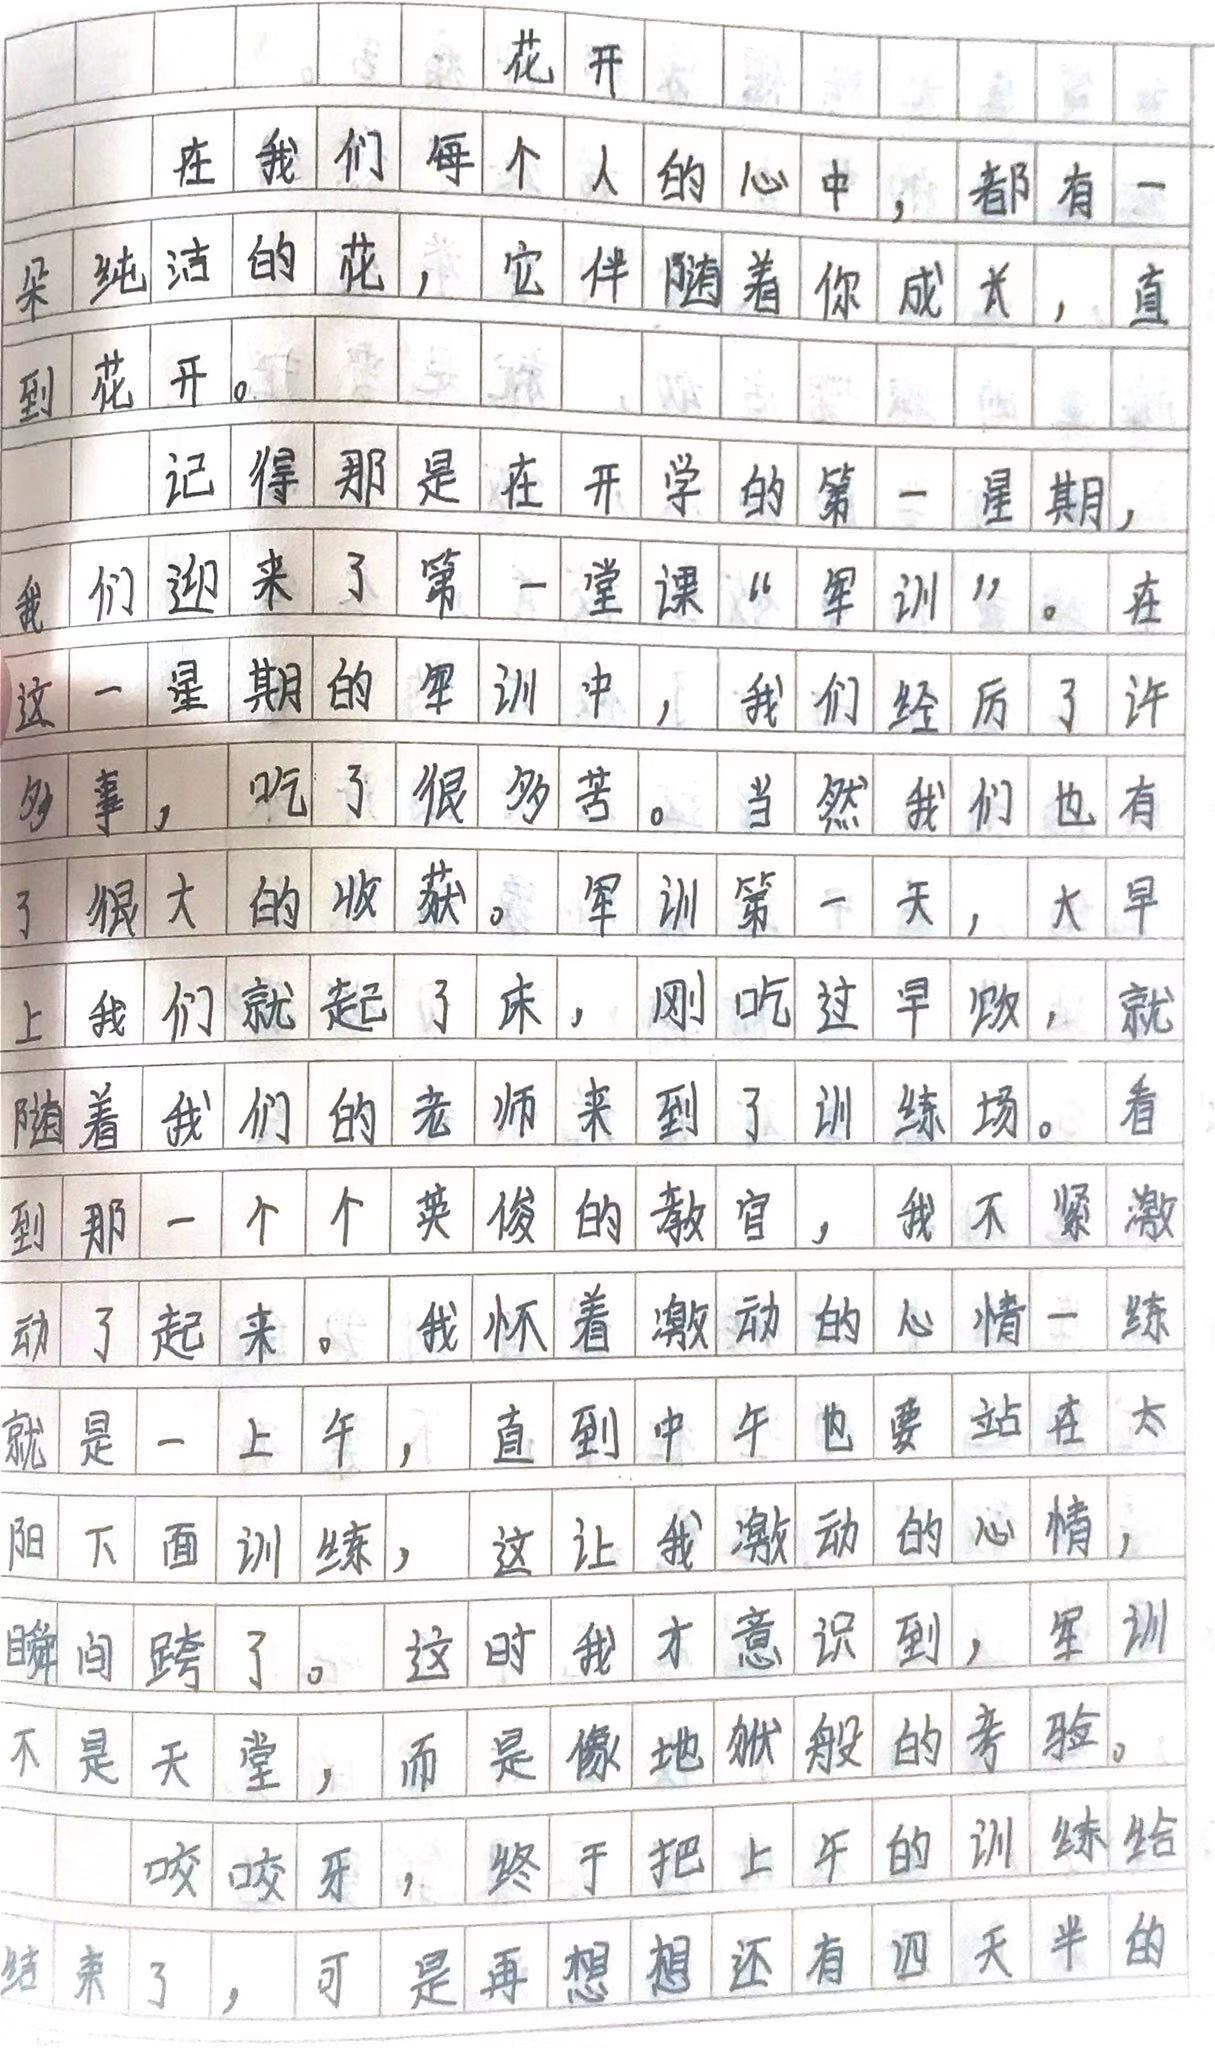 花开
在我们每个人的心中，都有一
朵纯洁的花，它伴随着你成长，直
到花开。
记得那是在开学的第一星期，
我们迎来了第一堂课“军训”。在
这一星期的军训中，我们经历了许
多事，吃了很多苦。当然我们也有
了很大的收获。军训第一天，大早
上我们就起了床，刚吃过早饭，就
随着我们的老师来到了训练场。看
到那一个个英俊的教官，我不紧激
动了起来。我怀着激动的心情一练
就是一上午，直到中午也要站在太
阳下面训练，这让我激动的心情，
瞬间跨了。这时我才意识到，军训
不是天堂，而是像地狱般的考验。
咬咬牙，终于把上午的训练给
结束了，可是再想想还有四天半的